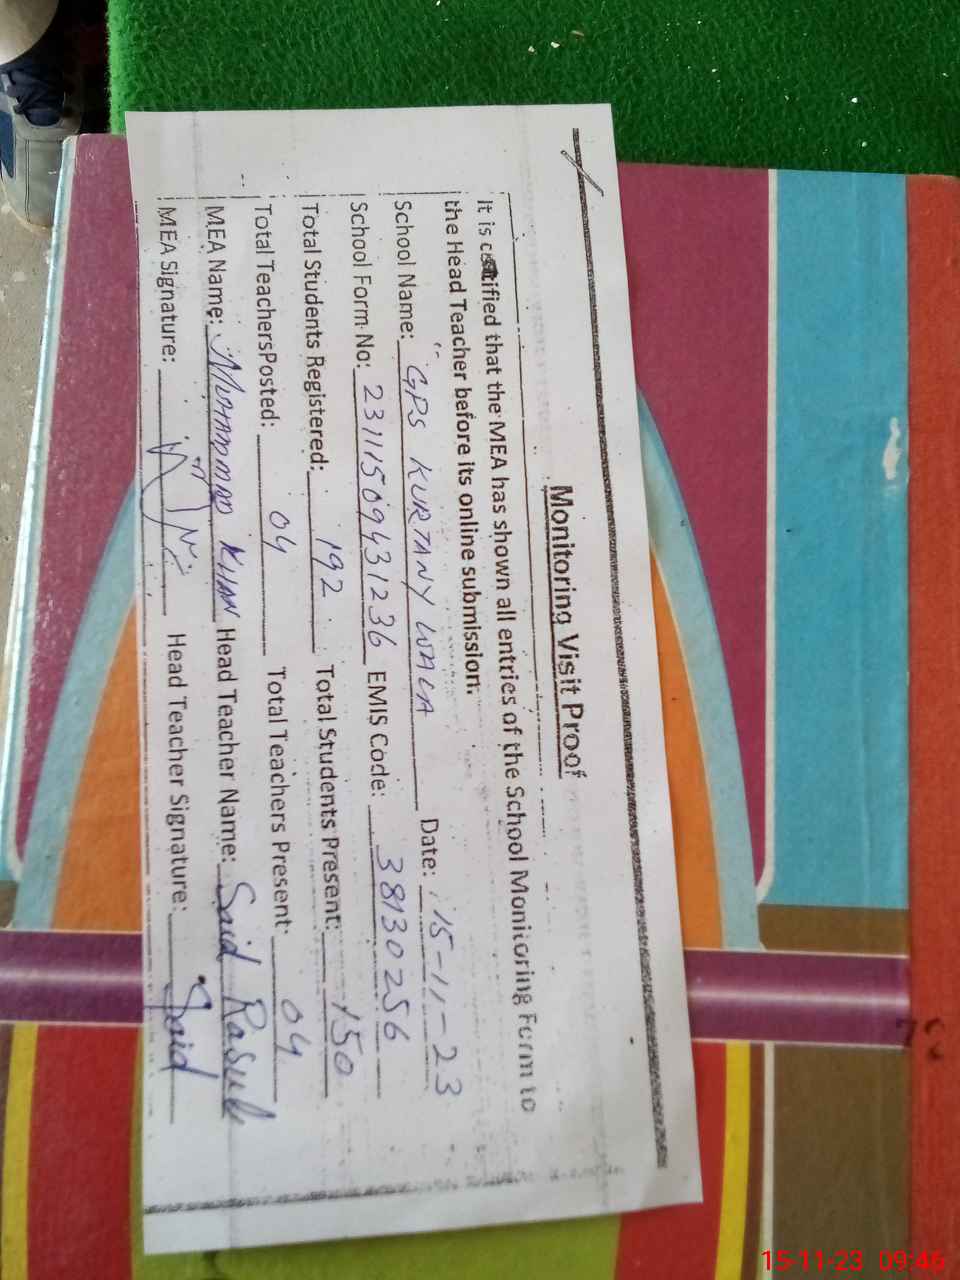 Monitoring Visit Proof
It is certified that the MEA has shown all entries of the School Monitoring Form to
the Head Teacher before its online submission.
School Name: GPS KURTANY WALA Date: 15-11-23
School Form No: 23111509431236 EMIS Code: 38130256
Total Students Registered: 192 Total Students Present: 150
Total TeachersPosted: 04 Total Teachers Present: 04
MEA Name: MUHAMMAD KHAN Head Teacher Name: Said Rasul
MEA Signature: Head Teacher Signature: Said
15-11-23 09:46